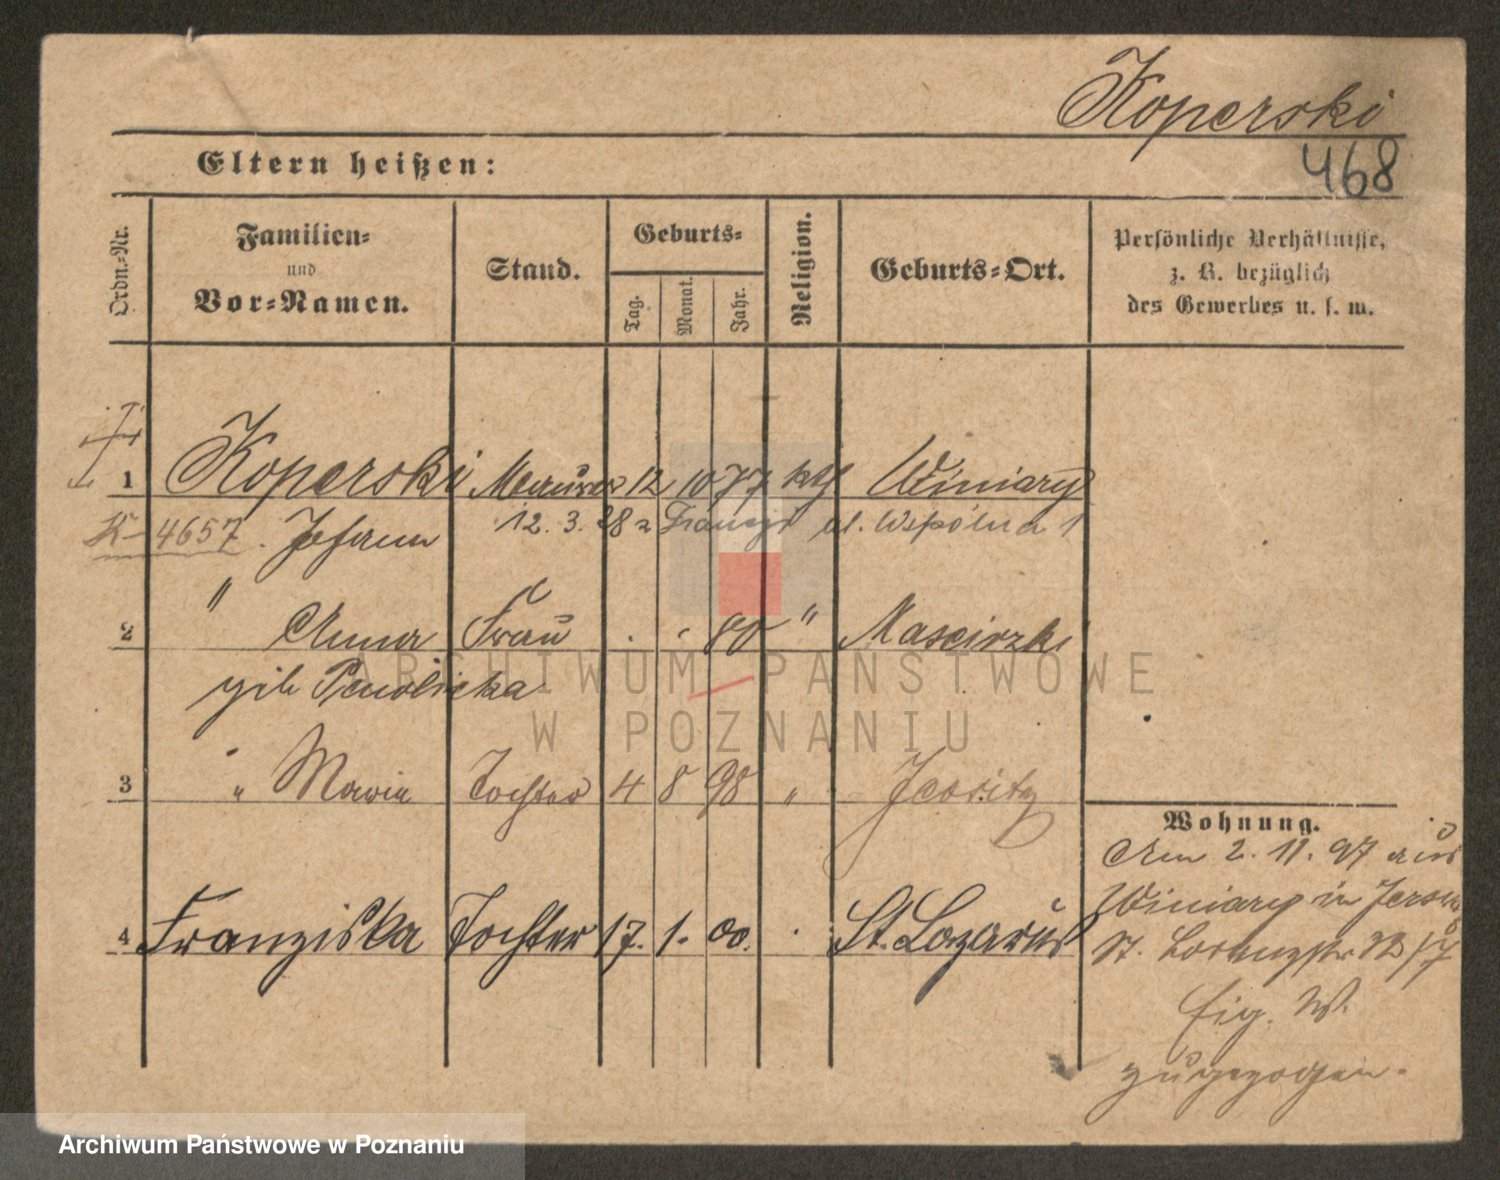 Koperski
468
Eltern heißen:
Ordn.-Nr.
Familien-
und
Vor-Namen.
Stand.
Geburts-
Tag.
Monat.
Jahr.
Religion.
Geburts-Ort.
Persönliche Verhältnisse,
z. B. bezüglich
des Gewerbes u. s. w.
1 Koperski Maurer 12 10 77 kth Winiary
K-4657. Johann 12. 3. 28 z Francji ul. Wspólna 1
2 " Anna Frau . . 80 "
geb
3 " Maria Tochter 4 8 98 " Jersitz
4 Franziska Tochter 17. 1. 00. . St. Lazarus
Wohnung.
Am 2. 11. 97 aus
Winiary in
St.
Eig. W.
zugezogen.
ARCHIWUM PAŃSTWOWE
W POZNANIU
Archiwum Państwowe w Poznaniu